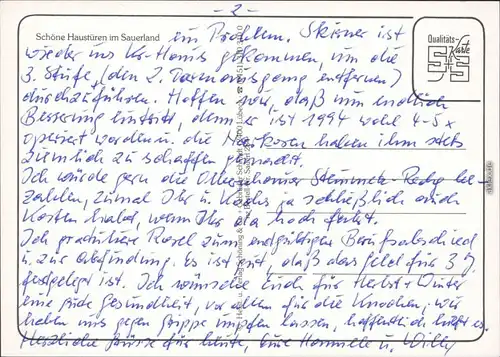 - 2 -
Schöne Haustüren im Sauerland
ein Problem. Skiener ist
Qualitäts-
Karte
S+S
wieder ins Kr-Haus gekommen, um die
3. Stufe (den 2. Darmausgang entfernen)
durchzuführen. Hoffen wir, daß nun endlich
Besserung eintritt, denn er ist 1994 wohl 4-5x
operiert worden u. die Narkosen haben ihm stets
ziemlich zu schaffen gemacht.
Ich würde gern die Steinmetz-Rechg be-
zahlen, zumal Ihr u. ja schließlich auch
Kosten habt, wenn Ihr da hoch fahrt.
Ich gratuliere Rosel zum endgültigen Berufsabschied
u. zur Abfindung. Es ist gut, daß das Geld für 3 J.
festgelegt ist. Ich wünsche Euch für Herbst + Winter
eine gute Gesundheit, vor allem für die Knochen; wir
haben uns gegen Grippe impfen lassen, hoffentlich hilft es.
Herzliche Grüße für heute, Eure Hannele u. Willy